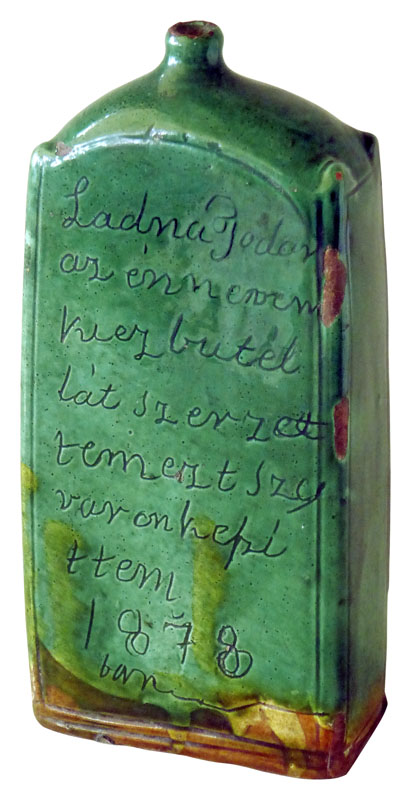 Ladna Todor
az énnevem
ki ez butél
lát szerzet
tem ezt szY
var on kepi
ttem
1878
ban